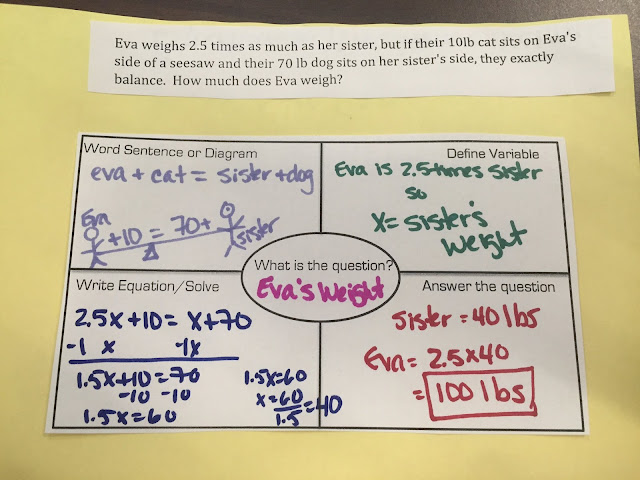 Eva weighs 2.5 times as much as her sister, but if their 10lb cat sits on Eva's
side of a seesaw and their 70 lb dog sits on her sister's side, they exactly
balance. How much does Eva weigh?
Word Sentence or Diagram
eva + cat = sister + dog
Eva
+10 = 70+
sister
Define Variable
Eva is 2.5 times sister
so
X = sister's
weight
What is the question?
Eva's Weight
Write Equation/Solve
2.5x + 10 = x + 70
-1 x -1x
1.5x + 10 = 70
-10 -10
1.5x = 60
1.5x = 60
x = 60
1.5 = 40
Answer the question
Sister = 40 lbs
Eva = 2.5 x 40
= 100 lbs